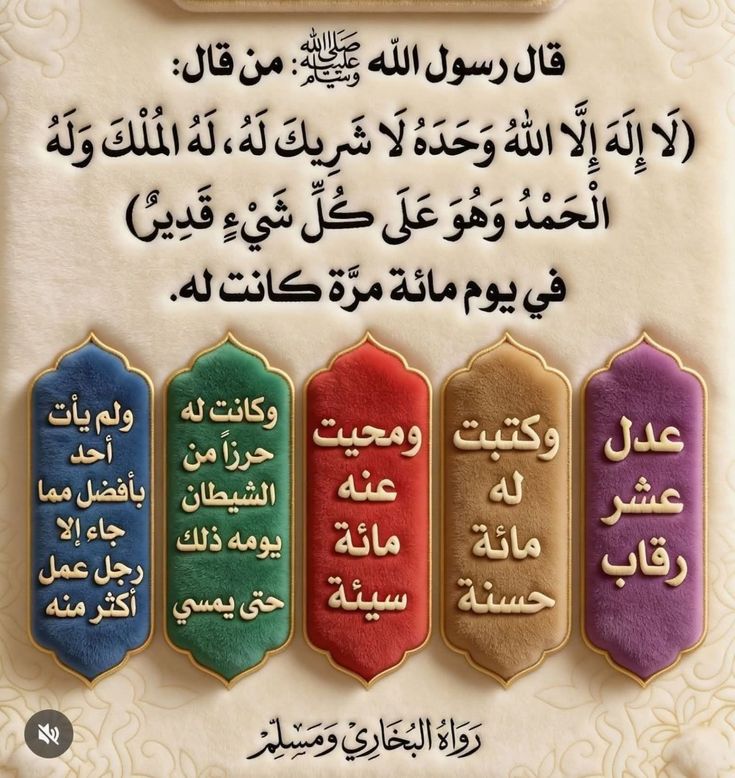 قال رسول الله ﷺ: من قال:
(لَا إِلَهَ إِلَّا اللهُ وَحَدَهُ لَا شَرِيكَ لَهُ، لَهُ المُلْكَ وَلَهُ
الْحَمْدُ وَهُوَ عَلَى كُلِّ شَيْءٍ قَدِيرٌ)
في يوم مائة مرَّة كانت له.
عدل
عشر
رقاب
وكتبت
له
مائة
حسنة
ومحيت
عنه
مائة
سيئة
وكانت له
حرزاً من
الشيطان
يومه ذلك
حتى يمسي
ولم يأت
أحد
بأفضل مما
جاء إلا
رجل عمل
أكثر منه
رَوَاهُ البُخَارِيْ وَمُسَلِمْ